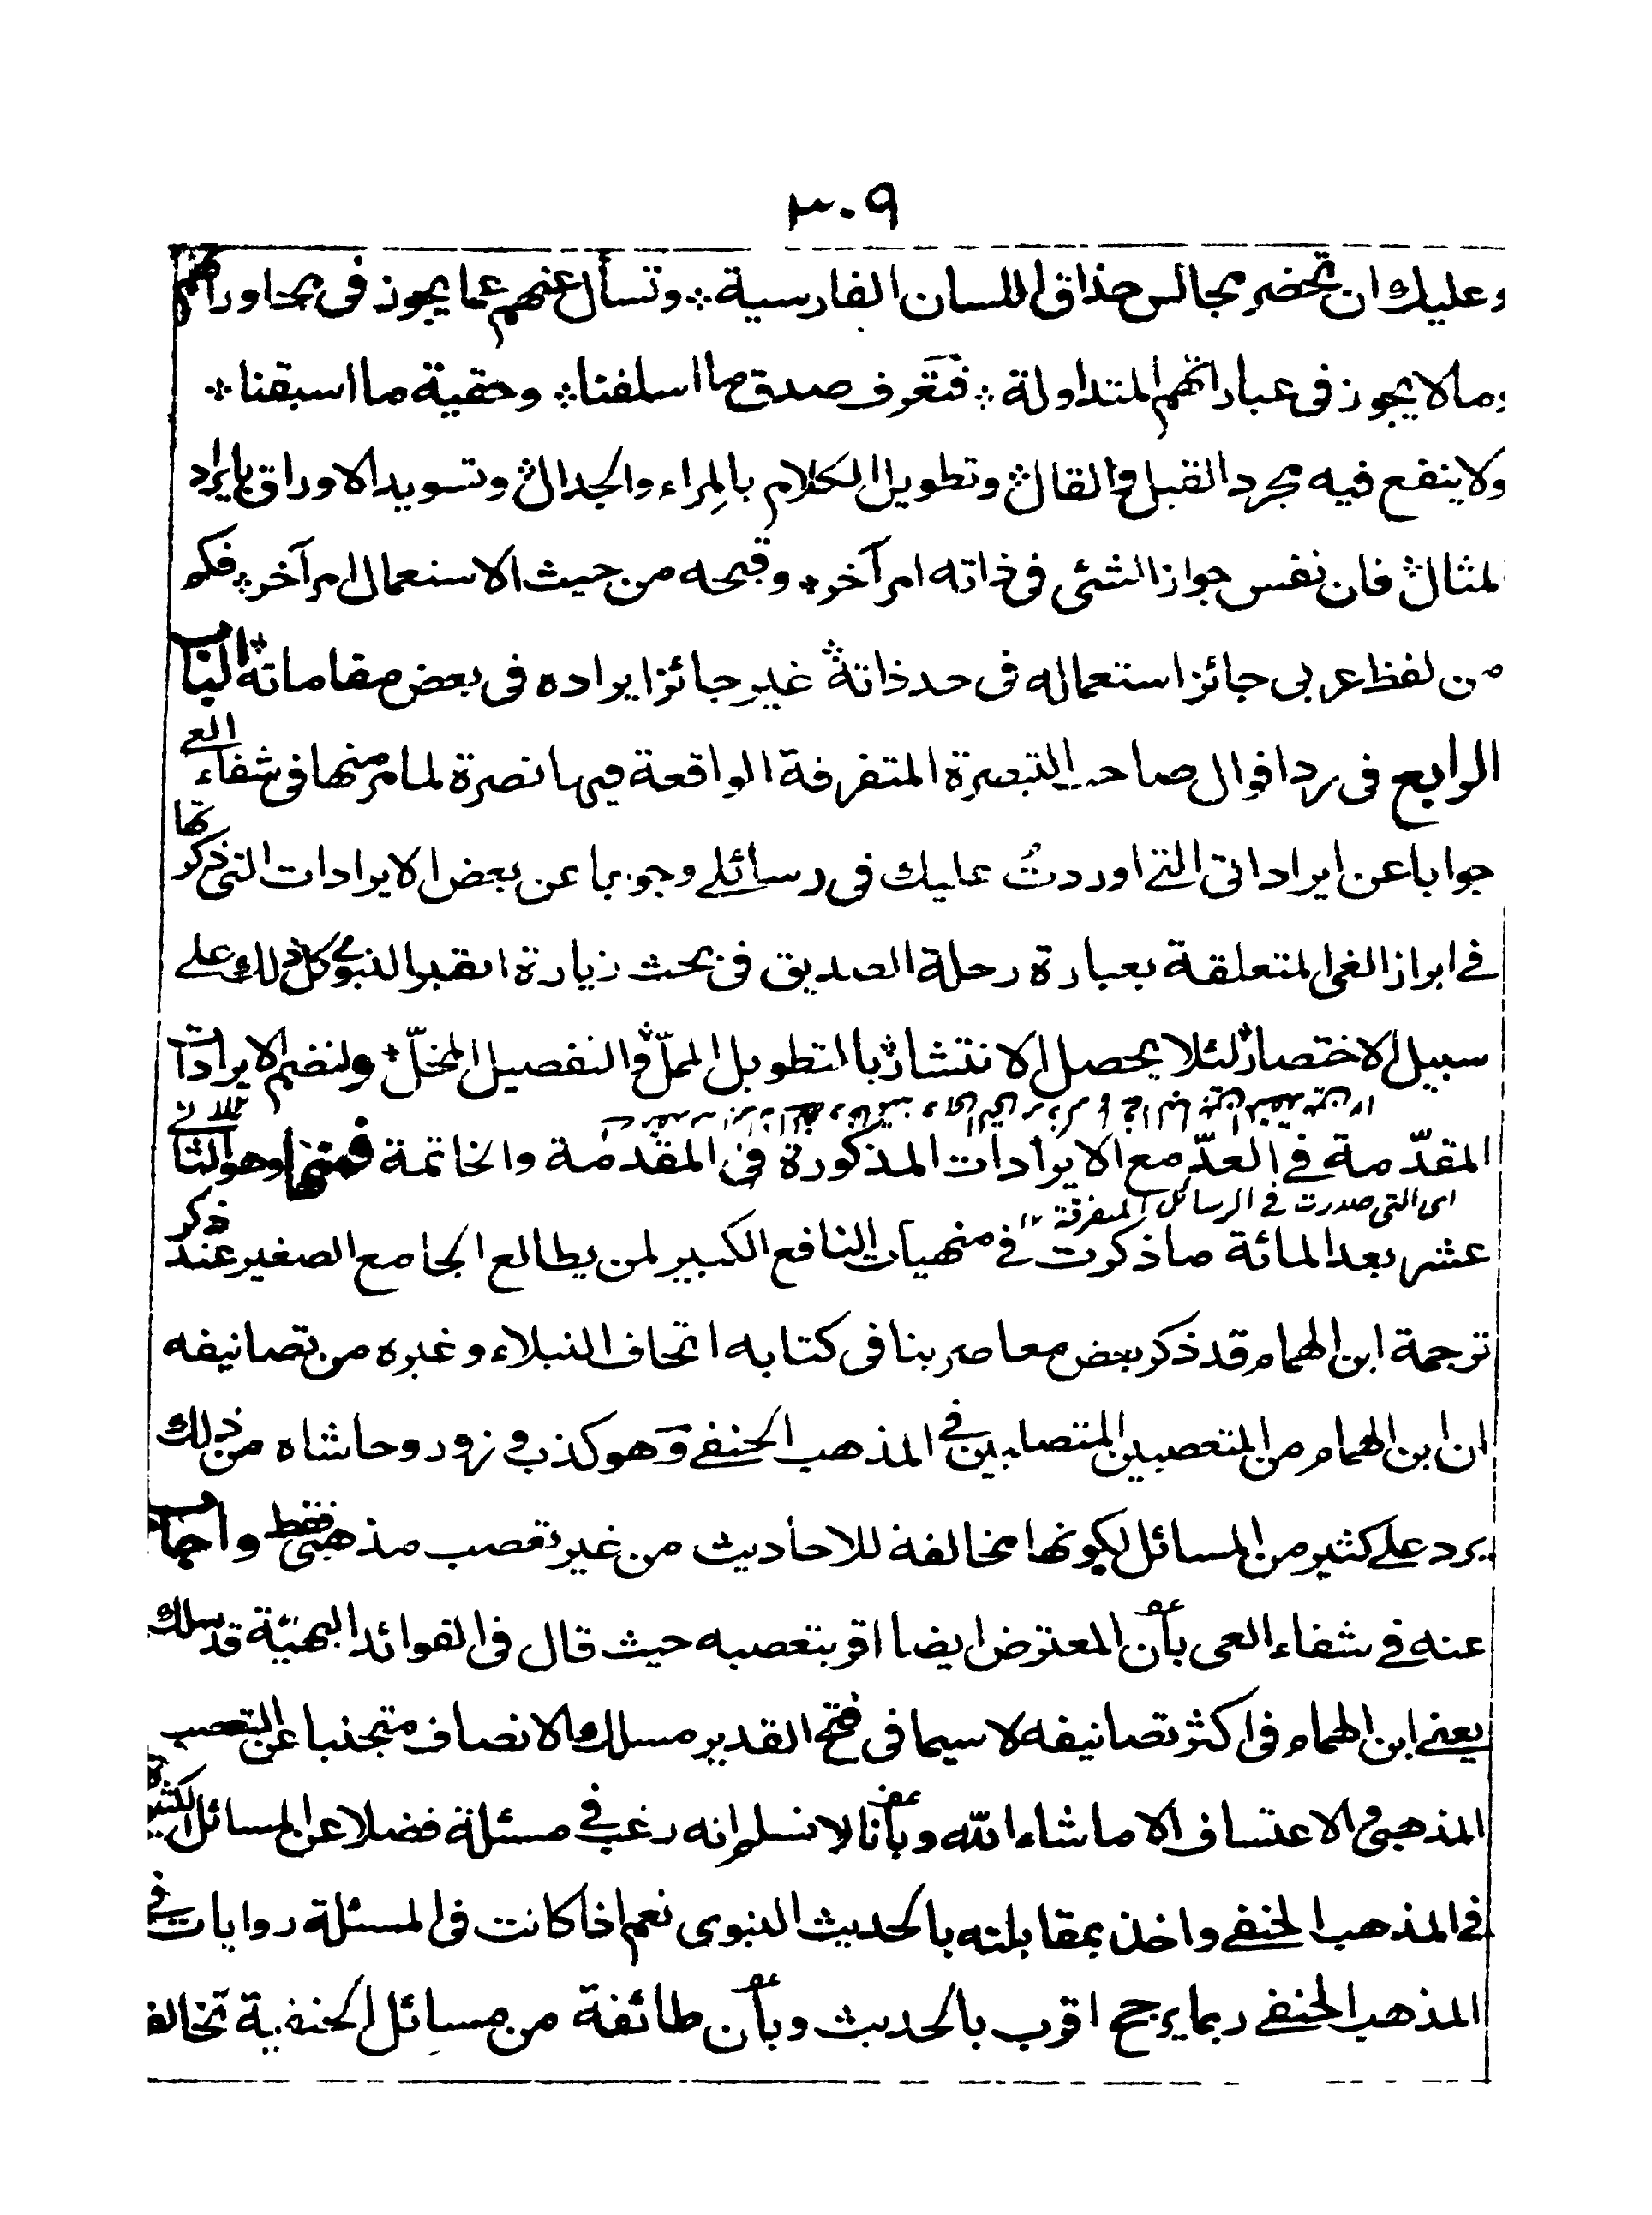 ٣٠٩
وعليك ان تحضر مجالس حذاق اللسان الفارسية ÷ وتسأل عنهم عما يجوز فى محاوراتهم
وما لا يجوز فى عباراتهم المتداولة ÷ فتعرف صدق ما اسلفنا ÷ وحقية ما اسبقنا ÷
ولا ينفع فيه مجرد القيل والقال ÷ وتطويل الكلام بالمِراء والجدال ÷ وتسويد الاوراق بايراد
المثال ÷ فان نفس جواز الشئى فى ذاته امر آخر ÷ وقبحه من حيث الاستعمال امر آخر ÷ فكم
من لفظ عربى جائز استعماله فى حد ذاته ÷ غير جائز ايراده فى بعض مقاماته ÷ الباب
الرابع فى رد اقوال صاحب التبصرة المتفرقة الواقعة فيها نصرة لما مر منها فى شفاء العى
جوابا عن ايراداتى التى اوردتُ عليك فى رسائلى وجوابا عن بعض الايرادات التى ذكرتها
فى ابراز الغى المتعلقة بعبارة رحلة الصديق فى بحث زيارة القبر النبوى كل ذلك على
سبيل الاختصار ÷ لئلا يحصل الانتشار ÷ بالتطويل المملّ والتفصيل المخلّ ÷ ولنضم الايرادات
المقدّمة فى العدّ مع الايرادات المذكورة فى المقدمة والخاتمة فمنها وهو الثالث
اى التى صدرت فى الرسائل المتفرقة ١٢
عشر بعد المائة ما ذكرت فى منهيات النافع الكبير لمن يطالع الجامع الصغير عند ذكر
ترجمة ابن الهمام قد ذكر بعض معاصرينا فى كتابه اتحاف النبلاء وغيره من تصانيفه
ان ابن الهمام من المتعصبين المتصلبين فى المذهب الحنفى وهو كذب وزور وحاشاه من ذلك
يرد على كثير من المسائل لكونها مخالفة للاحاديث من غير تعصب مذهبى فقط واجاب
عنه فى شفاء العى بأن المعترض ايضا اقر بتعصبه حيث قال فى الفوائد البهيّة قد سلك
يعنى ابن الهمام فى اكثر تصانيفه لا سيما فى فتح القدير مسلك الانصاف متجنبا عن التعصب
المذهبى والاعتساف الا ما شاء الله وبأنا لا نسلم انه رغب فى مسئلة فضلا عن المسائل الكثيرة
فى المذهب الحنفى واخذ بمقابلته بالحديث النبوى نعم اذا كانت فى المسئلة روايات فى
المذهب الحنفى ربما يرجح اقرب بالحديث وبأن طائفة من مسائل الحنفية تخالف